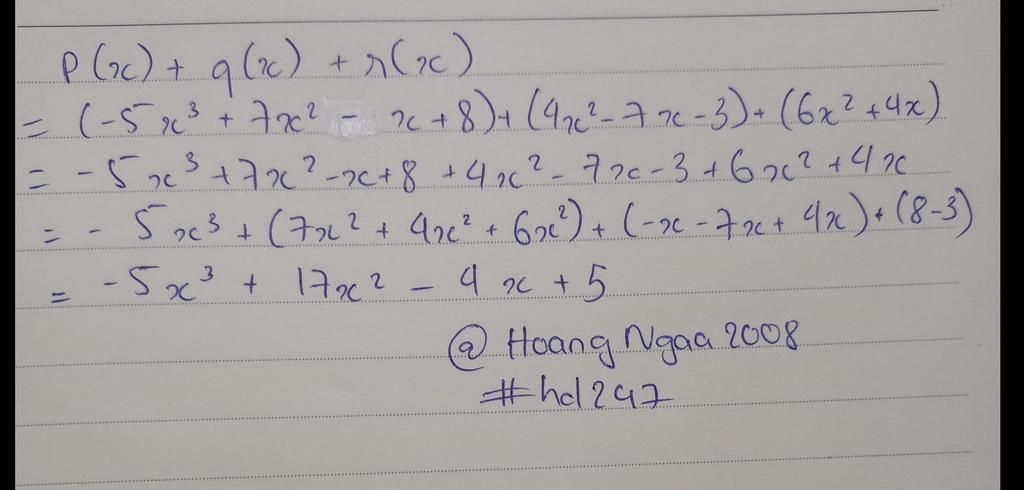 p(x) + q(x) + r(x)
= (-5x³ + 7x² - x + 8) + (4x² - 7x - 3) + (6x² + 4x)
= -5x³ + 7x² - x + 8 + 4x² - 7x - 3 + 6x² + 4x
= - 5x³ + (7x² + 4x² + 6x²) + (-x - 7x + 4x) + (8-3)
= -5x³ + 17x² - 4x + 5
@ Hoang Ngaa 2008
#hd247